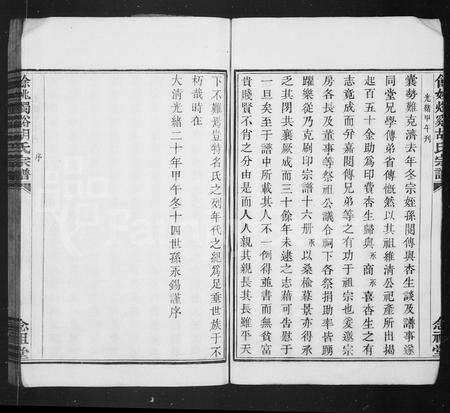 餘姚燭谿胡氏宗譜
光緒甲午刊
囊勢難克濟去年冬宗姪孫閬傳與杏生談及譜事遂
同堂兄學傳弟省傳慨然以其祖維清公祀產所出揭
起百五十金助為印費杏生歸與 承 商 承 喜杏生之有
志竟成而并嘉閬傳兄弟等之有功于祖宗也爰邀宗
房各長及董事等祭祖公議合祠下各祭捐助率皆踴
躍樂從乃克刷印宗譜十六册 承 以桑榆暮景亦得承
乏其間共襄厥成而三十餘年未逮之志藉可告慰于
一旦矣至于譜中所載其人不一例得並書而無貧富
貴賤賢不肖之分由是而人人親其親長其長雖平天
念祖堂
下不難焉豈特名氏之列年代之紀為足垂世族于不
朽哉時在
大清光緒二十年甲午冬十四世孫承錫謹序
餘姚燭谿胡氏宗譜
序
念祖堂